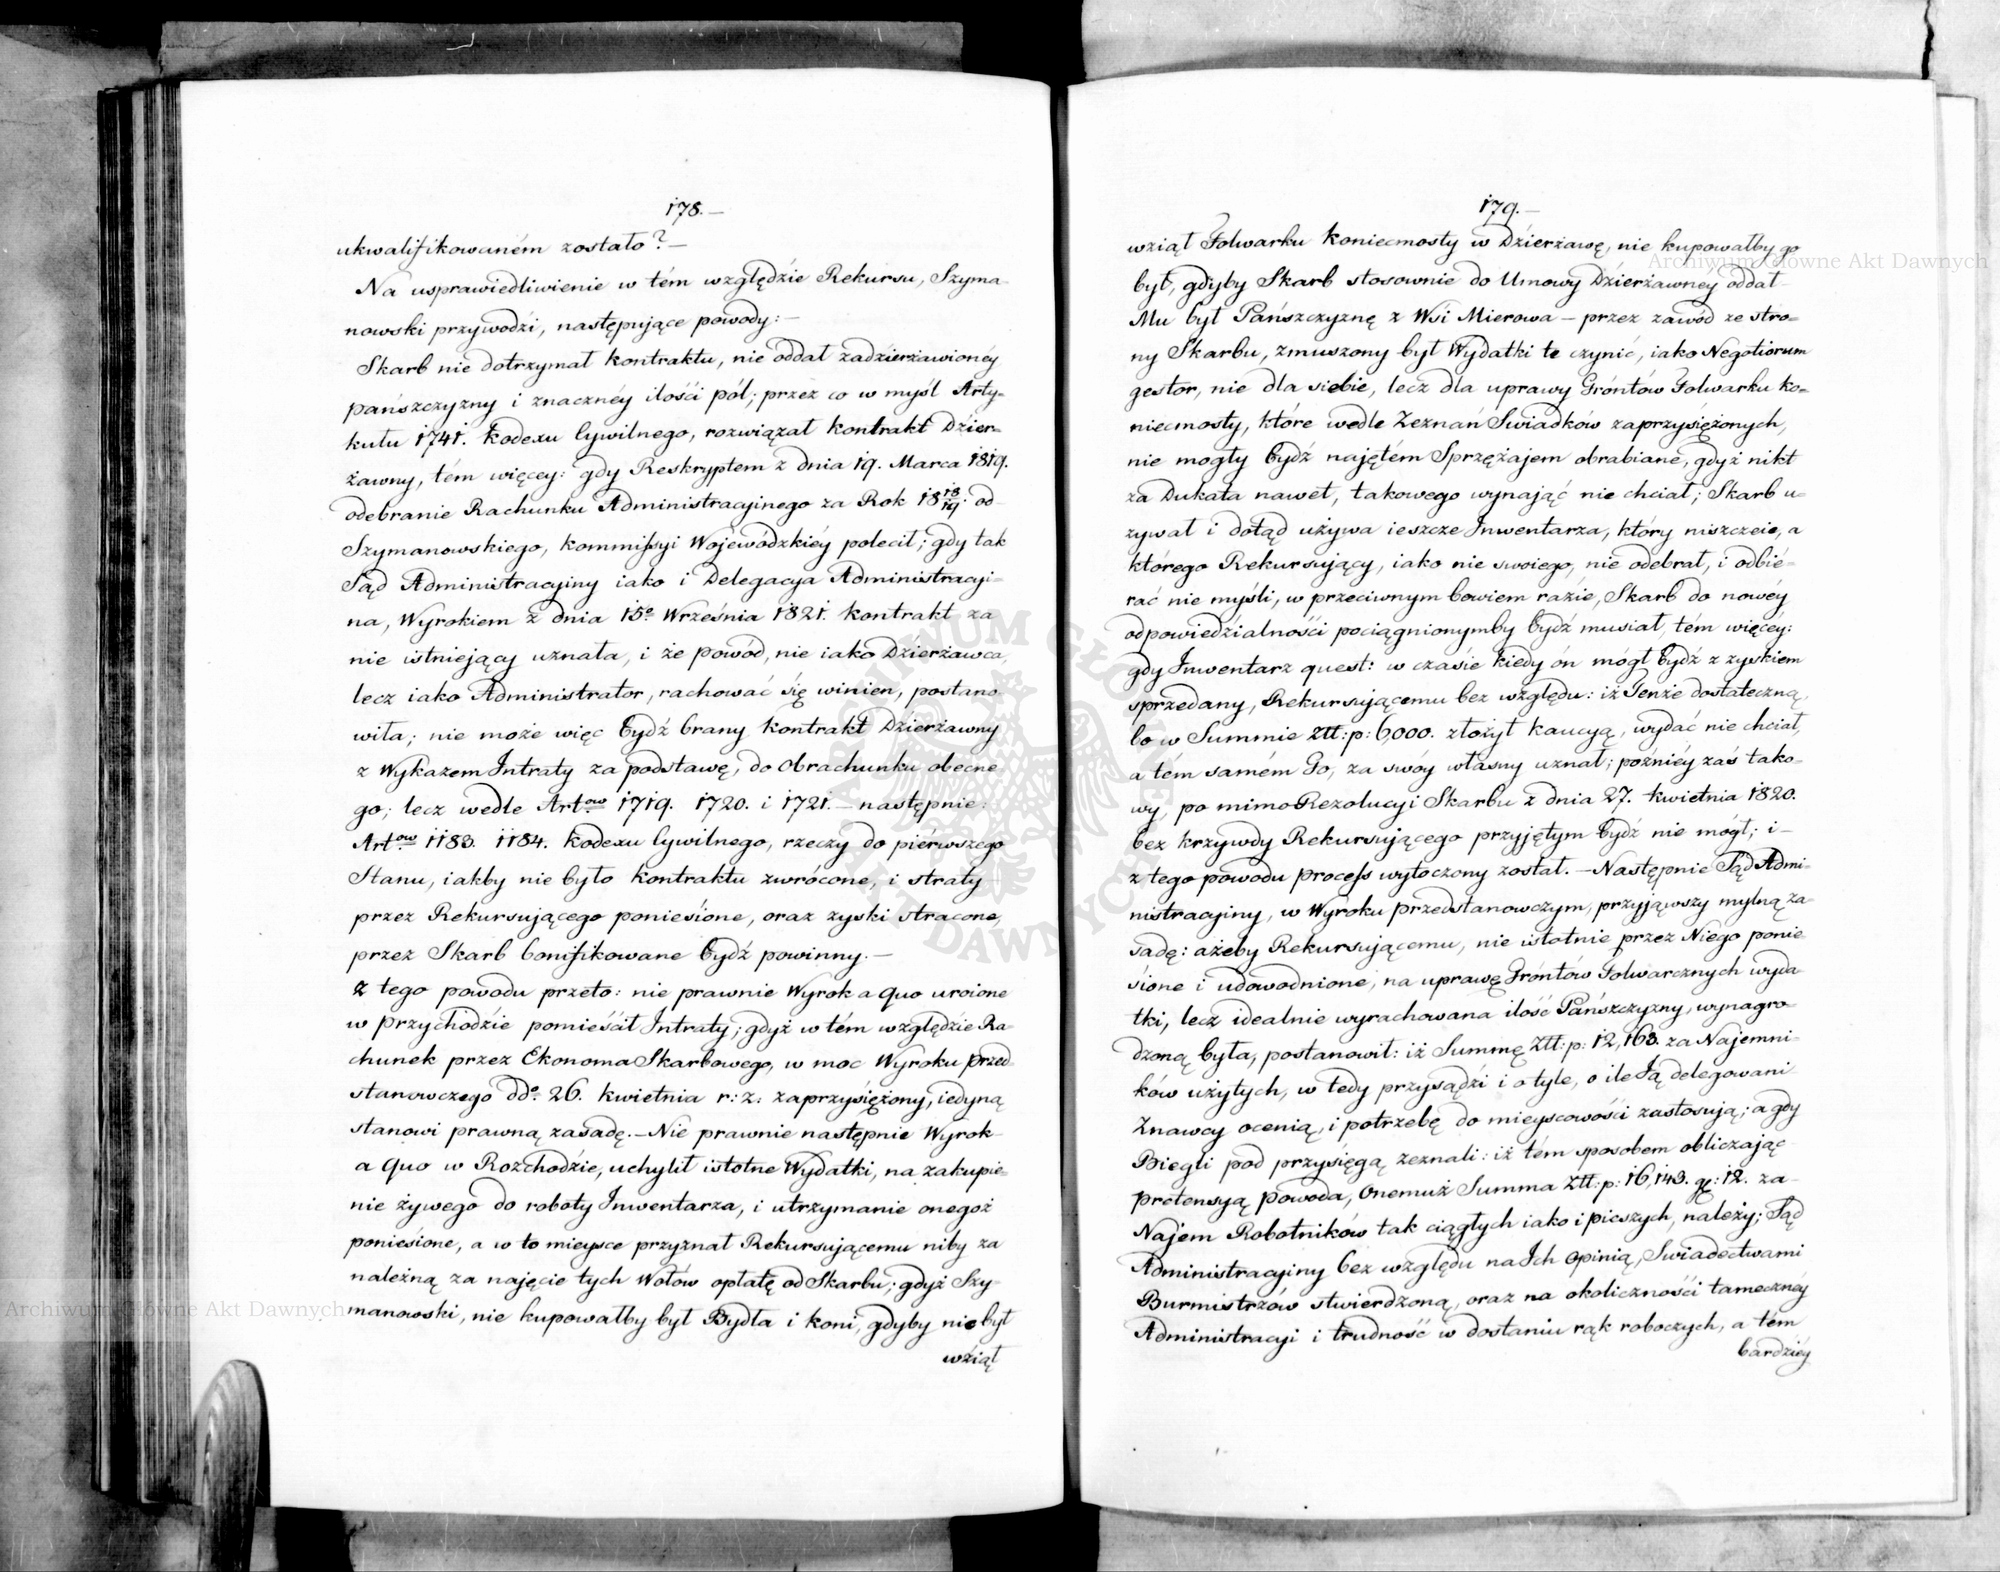 178.—
ukwalifikowaném zostało?—
Na usprawiedliwienie w tém względzie Rekursu, Szyma-
nowski przywodzi, następujące powody:—
Skarb nie dotrzymał kontraktu, nie oddał zadzierżawionéy
pańszczyzny i znacznéy ilości pól; przez co w myśl Arty-
kułu 1741. Kodexu Cywilnego, rozwiązał kontrakt Dzier-
żawny, tém więcey: gdy Reskryptem z dnia 19. Marca 1819.
odebranie Rachunku Administracyjnego za Rok 18 18/19. od-
Szymanowskiego, Kommissyi Wojewódzkiéy polecił; gdy tak
Sąd Administracyiny iako i Delegacya Administracyi-
na, Wyrokiem z dnia 15º Września 1821. kontrakt za
nie istniejący uznała, i że powód, nie iako Dzierżawca,
lecz iako Administrator, rachować się winien, postano
wiła; nie może więc bydź brany kontrakt Dzierżawny
z Wykazem Intraty za podstawę, do Obrachunku obecne
go; lecz wedle Art.ow 1719. 1720. i 1721.— następnie:
Art.ow 1183. 1184. Kodexu Cywilnego, rzeczy do piérwszego
Stanu, iakby nie było kontraktu zwrócone, i straty
przez Rekursującego poniesione, oraz zyski stracone,
przez Skarb bonifikowane bydź powinny.—
Z tego powodu przeto: nie prawnie Wyrok a quo uroione
w Przychodzie pomieścił Intraty; gdyż w tém względzie Ra-
chunek przez Ekonoma Skarbowego, w moc Wyroku Przed-
stanowczego dd.º 26. kwietnia r: z: zaprzysiężony, iedyną
stanowi prawną zasadę.— Nie prawnie następnie Wyrok-
a quo w Rozchodzie, uchylił istotne Wydatki, na zakupie-
nie żywego do roboty Inwentarza, i utrzymanie onegoż
poniesione, a w to mieysce przyznał Rekursującemu niby za
należną za najęcie tych Wołów opłatę od Skarbu; gdyż Szy-
manowski, nie kupowałby był Bydła i koni, gdyby nie był
wziął
179.—
wziął Folwarku Koniecmosty w Dzierżawę, nie kupowałby go
był, gdyby Skarb stosownie do Umowy Dzierżawnéy oddał
Mu był Pańszczyznę z Wsi Mierowa — przez zawód ze stro-
ny Skarbu, zmuszony był Wydatki te czynić, iako Negotiorum
gestor, nie dla siebie, lecz dla uprawy Gróntów Folwarku Ko-
niecmosty, które wedle Zeznań Świadków zaprzysiężonych,
nie mogły bydź najętém Sprzężajem obrabiane, gdyż nikt
za Dukata nawet, takowego wynająć nie chciał; Skarb u-
zywał i dotąd używa ieszcze Inwentarza, który niszczeie, a
którego Rekursujący, iako nie swoiego, nie odebrał, i odbié-
rać nie myśli, w przeciwnym bowiem razie, Skarb do nowéy
odpowiedzialności pociągnionymby bydź musiał, tém więcéy:
gdy Inwentarz quest: w czasie kiedy ón mógł bydź z zyskiem
sprzedany, Rekursującemu bez względu: iż Tenże dostateczną,
bo w Summie Złł: p: 6,000. złożył kaucyą, wydać nie chciał,
a tém samém Go, za swóy własny uznał; późniéy zaś tako-
wy, po mimo Rezolucyi Skarbu z dnia 27. Kwietnia 1820.
bez krzywdy Rekursującego przyjętym bydź nie mógł; i—
z tego powodu process wytoczony został.— Następnie Sąd Admi-
nistracyiny, w Wyroku Przedstanowczym, przyjąwszy mylną za-
sadę: ażeby Rekursującemu, nie istotnie przez Niego ponie
sione i udowodnione, na uprawę Gróntów Folwarcznych wyda-
tki, lecz idealnie wyrachowana ilość Pańszczyzny, wynagro-
dzoną była, postanowił: iż Summę Złł: p: 12,163. za Najemni-
ków użytych, w tedy przysądzi i o tyle, o ile Ją delegowani
Znawcy ocenią, i potrzebę do mieyscowości zastosują; a gdy
Biegli pod przysięgą zeznali: iż tém sposobem obliczając
pretensyą Powoda, Onemuż Summa Złł: p: 16,143. gr: 12. za-
Najem Robotników tak ciągłych iako i pieszych, należy; Sąd
Administracyiny bez względu na Ich Opinią, Świadectwami
Burmistrzów stwierdzoną, oraz na okoliczności tameczney
Administracyi i trudność w dostaniu rąk roboczych, a tém
bardziéy
Archiwum Główne Akt Dawnych
Archiwum Główne Akt Dawnych
ARCHIWUM GŁÓWNE AKT DAWNYCH